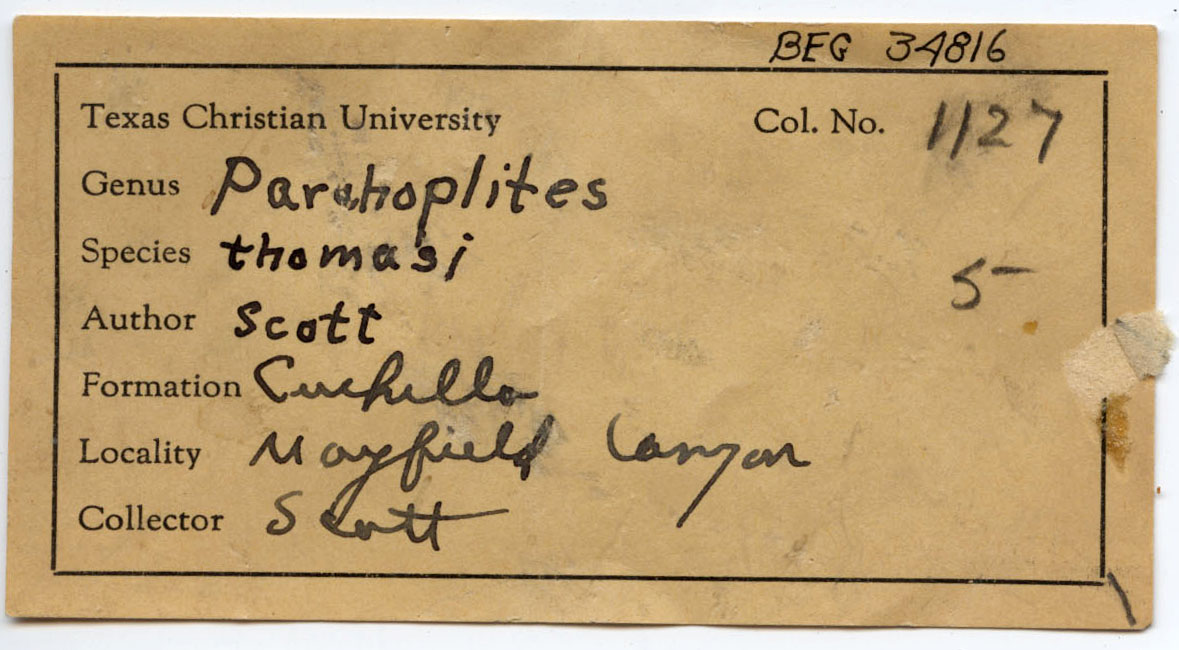 BEG 34816
Texas Christian University Col. No. 1127
Genus Parahoplites
Species thomasi
5-
Author Scott
Formation Cuchillo
Locality Mayfield Canyon
Collector Scott